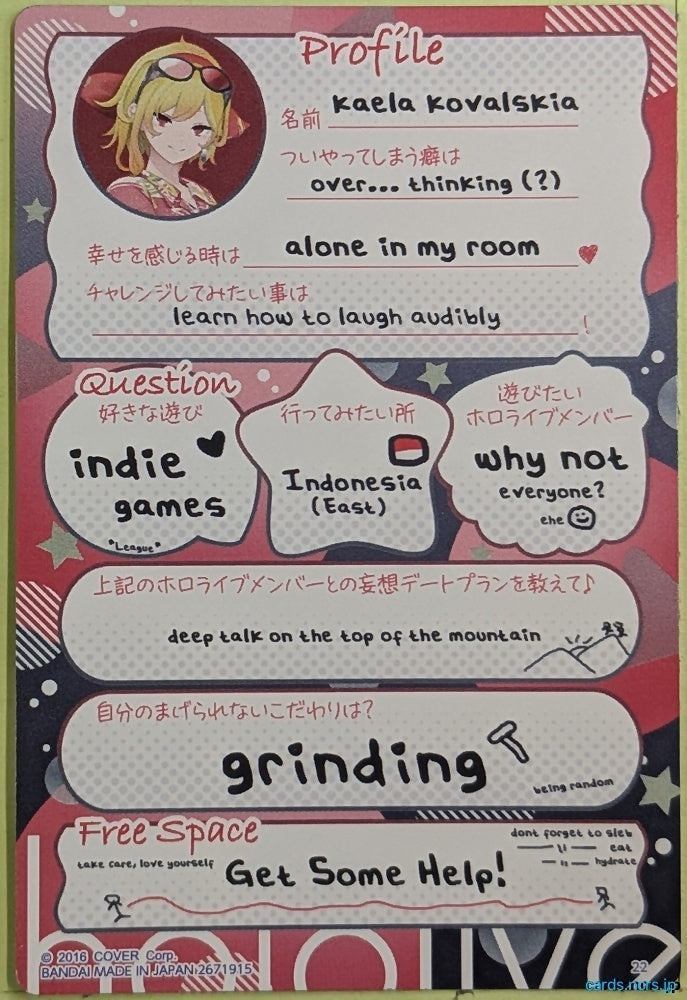 Profile
名前 kaela kovalskia
ついやってしまう癖は
over... thinking (?)
幸せを感じる時は alone in my room
チャレンジしてみたい事は
learn how to laugh audibly !
Question
好きな遊び
indie
games
*League*
行ってみたい所
Indonesia
(East)
遊びたい
ホロライブメンバー
why not
everyone?
ehe
上記のホロライブメンバーとの妄想デートプランを教えて♪
deep talk on the top of the mountain
自分のまげられないこだわりは?
grinding
being random
Free Space
take care, love yourself
Get Some Help!
dont forget to sleb
—— || —— eat
— || — hydrate
hololive
© 2016 COVER Corp.
BANDAI MADE IN JAPAN 2671915
22
cards.nors.jp